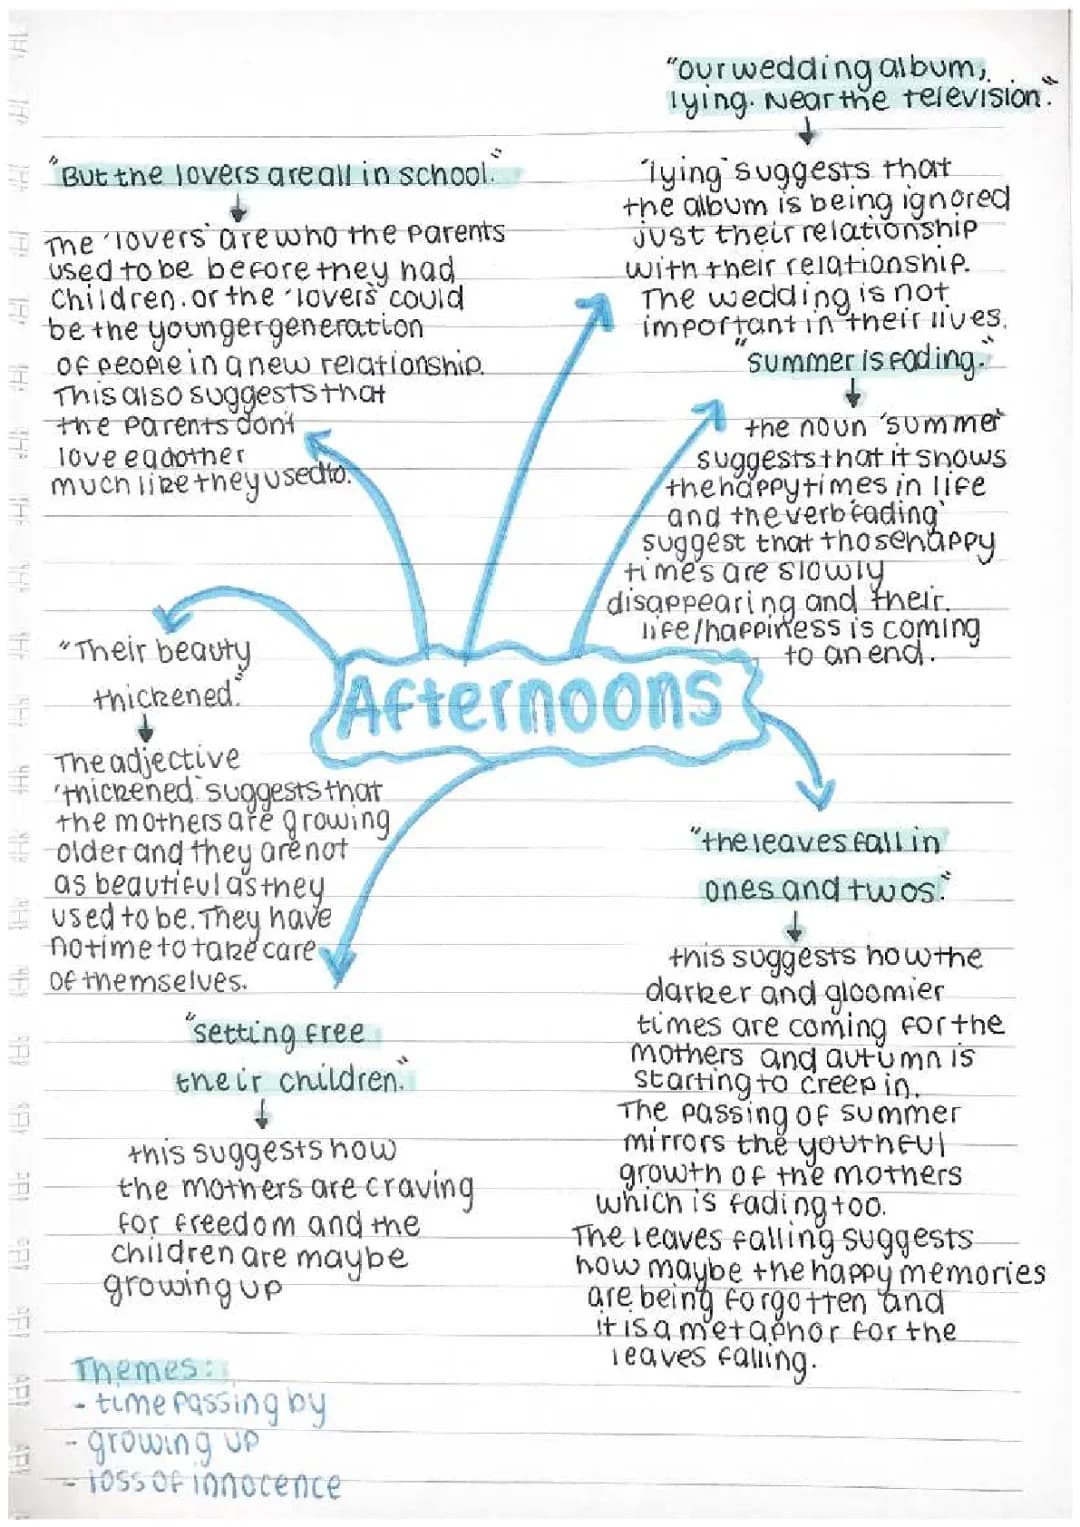 "But the lovers are all in school."
The 'lovers' are who the parents
used to be before they had
children. or the 'lovers' could
be the younger generation
of people in a new relationship.
This also suggests that
the parents don't
love eachother
much like they used to.
"our wedding album,
lying. Near the television."
'lying' suggests that
the album is being ignored
just their relationship
with their relationship.
The wedding is not
important in their lives.
"summer is fading."
the noun 'summer'
suggests that it shows
the happy times in life
and the verb 'fading'
suggest that those happy
times are slowly
disappearing and their
life/happiness is coming
to an end.
"Their beauty
thickened."
The adjective
'thickened' suggests that
the mothers are growing
older and they are not
as beautiful as they
used to be. They have
no time to take care
of themselves.
Afternoons
"setting free
their children."
this suggests how
the mothers are craving
for freedom and the
children are maybe
growing up
"the leaves fall in
ones and twos."
this suggests how the
darker and gloomier
times are coming for the
mothers and autumn is
starting to creep in.
The passing of summer
mirrors the youthful
growth of the mothers
which is fading too.
The leaves falling suggests
how maybe the happy memories
are being forgotten and
it is a metaphor for the
leaves falling.
Themes:
- time passing by
- growing up
- loss of innocence